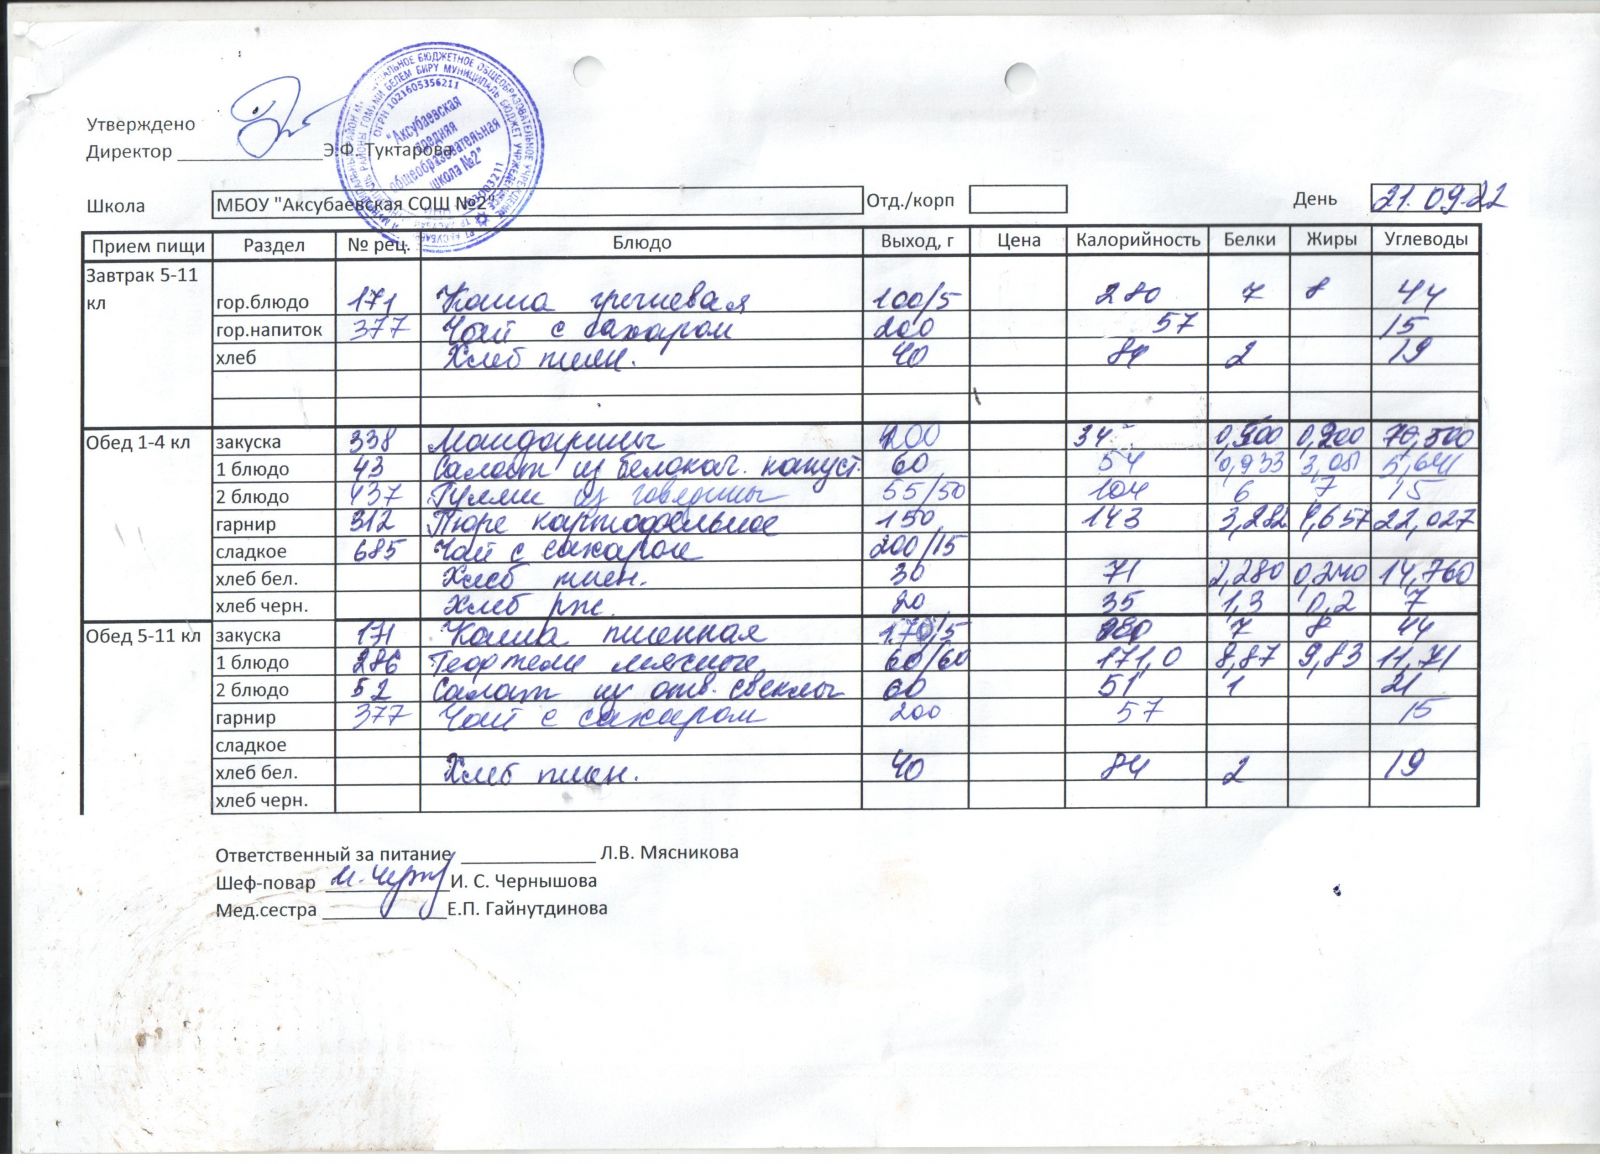 Утверждено
Директор Э.Ф. Туктарова
МУНИЦИПАЛЬНОЕ БЮДЖЕТНОЕ ОБЩЕОБРАЗОВАТЕЛЬНОЕ УЧРЕЖДЕНИЕ
ОГРН 1021605356211
"Аксубаевская
средняя
общеобразовательная
школа №2"
Школа МБОУ "Аксубаевская СОШ №2" Отд./корп День 21.09.22
Прием пищи Раздел № рец. Блюдо Выход, г Цена Калорийность Белки Жиры Углеводы
Завтрак 5-11
кл гор.блюдо 171 Каша гречневая 100/5 280 7 8 44
гор.напиток 377 Чай с сахаром 200 57 15
хлеб Хлеб пшен. 40 84 2 19
Обед 1-4 кл закуска 338 Мандарины 100 34 0,900 0,200 70,500
1 блюдо 43 Салат из белокач. капуст. 60 54 0,933 3,051 5,641
2 блюдо 437 Гуляш из говядины 55/50 104 6 7 15
гарнир 312 Пюре картофельное 150 143 3,282 4,657 22,027
сладкое 685 Чай с сахаром 200/15
хлеб бел. Хлеб пшен. 30 71 2,280 0,240 14,760
хлеб черн. Хлеб рж. 20 35 1,3 0,2 7
Обед 5-11 кл закуска 171 Каша пшенная 170/5 280 7 8 44
1 блюдо 286 Тефтели мясные 60/60 171,0 8,87 9,83 11,71
2 блюдо 52 Салат из отв. свеклы 60 51 1 21
гарнир 377 Чай с сахаром 200 57 15
сладкое
хлеб бел. Хлеб пшен. 40 84 2 19
хлеб черн.
Ответственный за питание Л.В. Мясникова
Шеф-повар И. С. Чернышова
Мед.сестра Е.П. Гайнутдинова